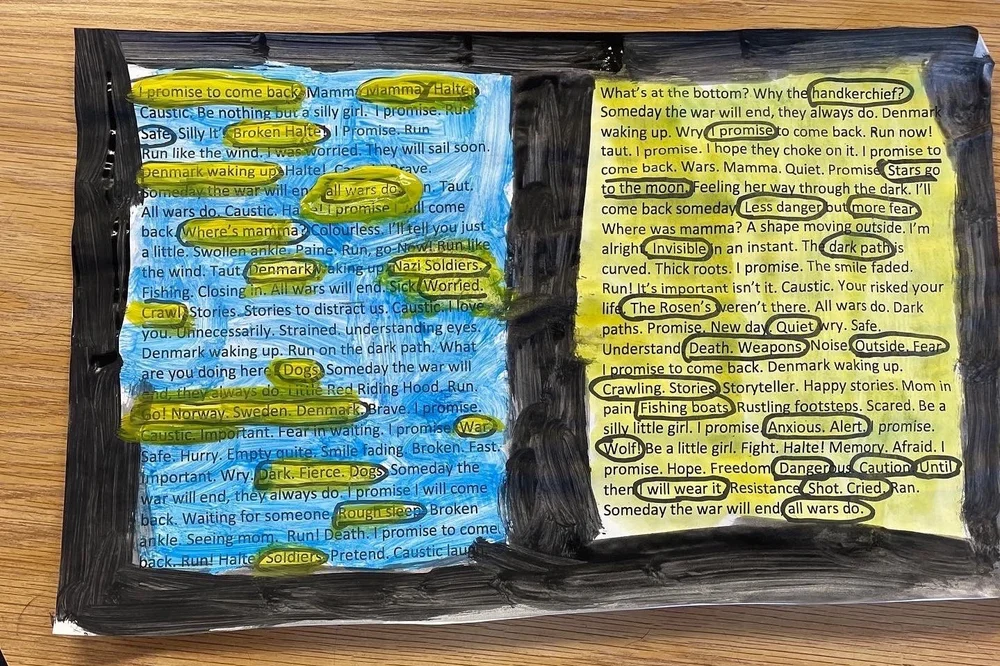 I promise to come back. Mamma. Mamma? Halte!
Caustic. Be nothing but a silly girl. I promise. Run
Safe. Silly It's Broken Halte! I Promise. Run
Run like the wind. I was worried. They will sail soon.
Denmark waking up. Halte!
Someday the war will end, all wars do. Taut.
All wars do. Caustic. I promise I will come
back. Where's mamma? Colourless. I'll tell you just
a little. Swollen ankle. Paine. Run, go Now! Run like
the wind. Taut. Denmark waking up. Nazi Soldiers.
Fishing. Closing in. All wars will end. Sick. Worried.
Crawl. Stories. Stories to distract us. Caustic. I love
you. Unnecessarily. Strained, understanding eyes.
Denmark waking up. Run on the dark path. What
are you doing here. Dogs. Someday the war will
end, they always do. Little Red Riding Hood. Run.
Go! Norway. Sweden. Denmark. Brave. I promise.
Caustic. Important. Fear in waiting. I promise. War.
Safe. Hurry. Empty quite. Smile fading. Broken. Fast.
Important. Wry. Dark. Fierce. Dogs. Someday the
war will end, they always do. I promise I will come
back. Waiting for someone. Rough sleep. Broken
ankle. Seeing mom. Run! Death. I promise to come
back. Run! Halte. Soldiers. Pretend. Caustic
What's at the bottom? Why the handkerchief?
Someday the war will end, they always do. Denmark
waking up. Wry. I promise to come back. Run now!
taut. I promise. I hope they choke on it. I promise to
come back. Wars. Mamma. Quiet. Promise. Stars go
to the moon. Feeling her way through the dark. I'll
come back someday. Less danger but more fear.
Where was mamma? A shape moving outside. I'm
alright. Invisible in an instant. The dark path is
curved. Thick roots. I promise. The smile faded.
Run! It's important isn't it. Caustic. Your risked your
life. The Rosen's weren't there. All wars do. Dark
paths. Promise. New day. Quiet wry. Safe.
Understand. Death. Weapons. Noise. Outside. Fear.
I promise to come back. Denmark waking up.
Crawling. Stories. Storyteller. Happy stories. Mom in
pain. Fishing boats. Rustling footsteps. Scared. Be a
silly little girl. I promise. Anxious. Alert. promise.
Wolf! Be a little girl. Fight. Halte! Memory. Afraid. I
promise. Hope. Freedom. Dangerous. Caution. Until
then I will wear it. Resistance. Shot. Cried. Ran.
Someday the war will end, all wars do.